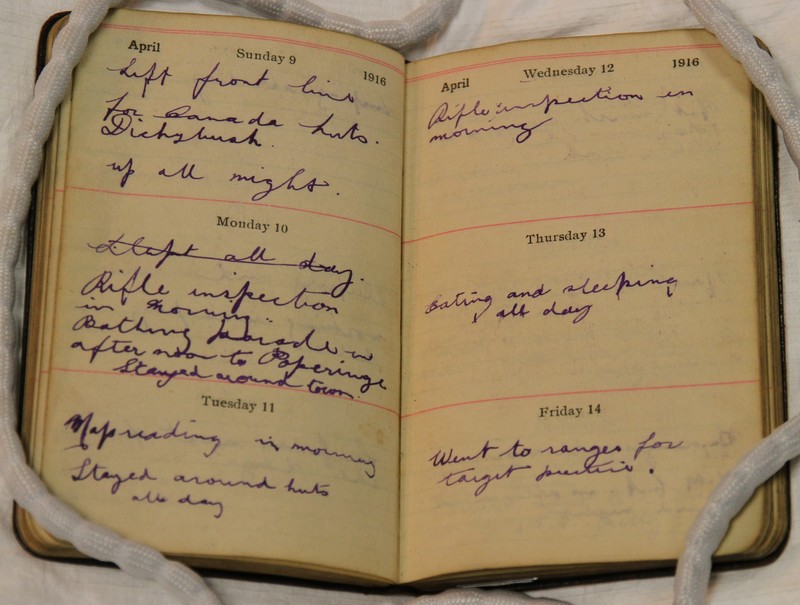 April Sunday 9 1916
Left front line
for Canada huts.
Dickybush.
up all night.
Monday 10
Slept all day.
Rifle inspection
in morning
Bathing parade in
after noon to Poperinge
Stayed around town.
Tuesday 11
Map reading in morning
Stayed around huts
all day
April Wednesday 12 1916
Rifle inspection in
morning
Thursday 13
Eating and sleeping
all day
Friday 14
Went to ranges for
target practice.